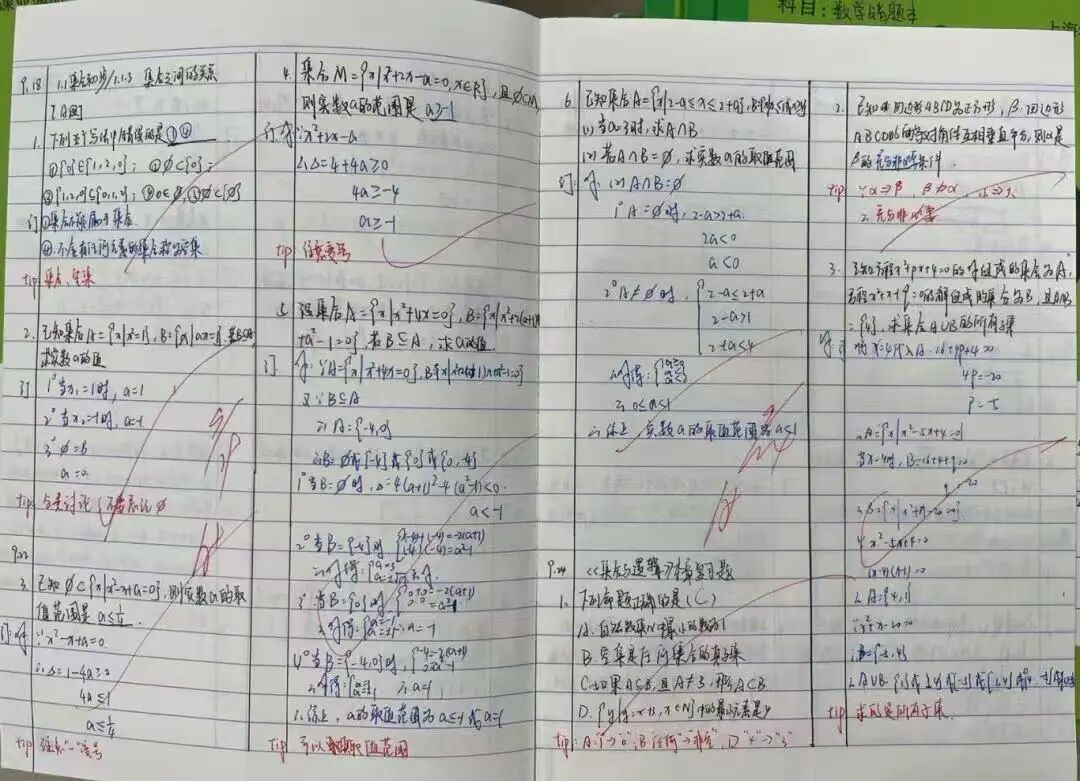 科目：数学错题本
9.18
1.1 集合初步/1.1.3 集合之间的关系
[A组]
1. 下列五个写法中错误的是①④
①{0}∈{1,2,0}；②∅⊂{0}；
③{1,2,0}⊆{0,1,2}；④0∈∅,⑤∅⊂{∅}
订 ①集合不能属于集合.
④.不含有任何元素的集合称为空集
tip 集合、空集
2. 已知集合A={x|x²=1},B={x|ax=1},若B⊆A,
求实数a的值
订 1° 当x₁=1时,a=1
2° 当x₂=-1时,a=-1
3° ∅=B
a=0.
tip 分类讨论(不要忘记∅
9.22
3. 已知∅⊂{x|x²-x+a=0},则实数a的取
值范围是a≤¼.
订:解 ∵x²-x+a=0.
∴Δ=1-4a≥0
4a≤1
a≤¼
tip 注意"-"变号
4. 集合M={x|x²+2x-a=0,x∈R},且∅⊂M,
则实数a的范围是a≥-1
订.解:∵x²+2x-a
∴Δ=4+4a≥0
4a≥-4
a≥-1
tip 注意变号
5. 设集合A={x|x²+4x=0},B={x|x²+2(a+1)x
+a²-1=0},若B⊆A,求a的值
订 解:∵A={x|x²+4x=0},B={x|x²+2(a+1)x+a²-1=0}
又∵B⊆A
∴A={-4,0}
∴B=∅或{-4}或{0}或{0,-4}
1° 当B=∅时,Δ=4(a+1)²-4(a²-1)<0.
a<-1
2° 当B={-4}时,
3° 当B={0}时,
∴a=-1
4° 当B={-4,0}时,
∴a=1
∴综上,a的取值范围为a≤-1或a=1
tip 取值范围
6. 已知集合A={x|2-a≤x≤2+a},
(1)当a=3时,求A∩B
(2)若A∩B=∅,求实数a的取值范围
订:解:(2)A∩B=∅
1° A=∅时,2-a>2+a.
2a<0
a<0
2° A≠∅时,{2-a≤2+a
2-a>1
2+a<4
∴解得:{a≥0
a<1
∴0≤a<1
∴综上 实数a的取值范围为a<1
9.24
《集合与逻辑》本章复习题
1. 下列命题正确的是(C)
A.自然数集N中最小的数为1
B.空集是任何集合的真子集
C.如果A⊆B,且A≠B,那么A⊂B
D.{y|y=x+3,x∈N}中的最小元素是4
tip:A:"1"→"0";B"任何"→"非空",D"4"→"3"
2. 已知α:四边形ABCD为正方形,β:四边形
ABCD的两对角线互相垂直平分,则α是
β的充分非必要条件.
tip ∵α⇒β β⇏α, 小⇒大
∴充分非必要
3. 已知方程x²+px+4=0的解组成的集合为A,
方程x²+x+q=0的解组成的集合为B,且A∩B
={4},求集合A∪B的所有子集
解:将x=4代入A.16+4p+4=0
4p=-20
p=-5
∴A={x|x²-5x+4=0}
当x=4时,B=16+4+q=0
q=-20
∴B={x|x²+x-20=0}
∵x²-5x+4=0
∴A={4,1}
∵x²+x-20=0
tip 求的是所有子集.